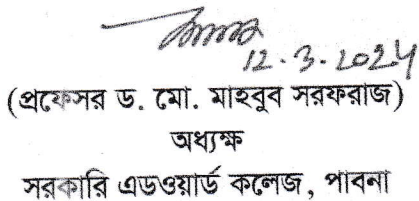 12.3.2024
(প্রফেসর ড. মো. মাহবুব সরফরাজ)
অধ্যক্ষ
সরকারি এডওয়ার্ড কলেজ, পাবনা